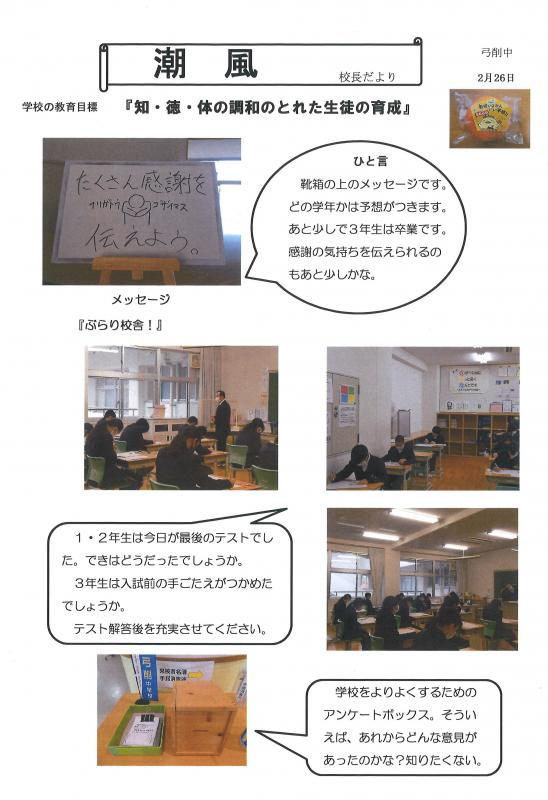 潮 風
校長だより
弓削中
2月26日
学校の教育目標 『知・徳・体の調和のとれた生徒の育成』
たくさん感謝を
アリガトウ ゴザイマス
伝えよう。
メッセージ
ひと言
靴箱の上のメッセージです。
どの学年かは予想がつきます。
あと少しで3年生は卒業です。
感謝の気持ちを伝えられるの
もあと少しかな。
『ぶらり校舎！』
1・2年生は今日が最後のテストでし
た。できはどうだったでしょうか。
3年生は入試前の手ごたえがつかめた
でしょうか。
テスト解答後を充実させてください。
弓削
中学校
学校をよりよくするための
アンケートボックス。そうい
えば、あれからどんな意見が
あったのかな？知りたくない。